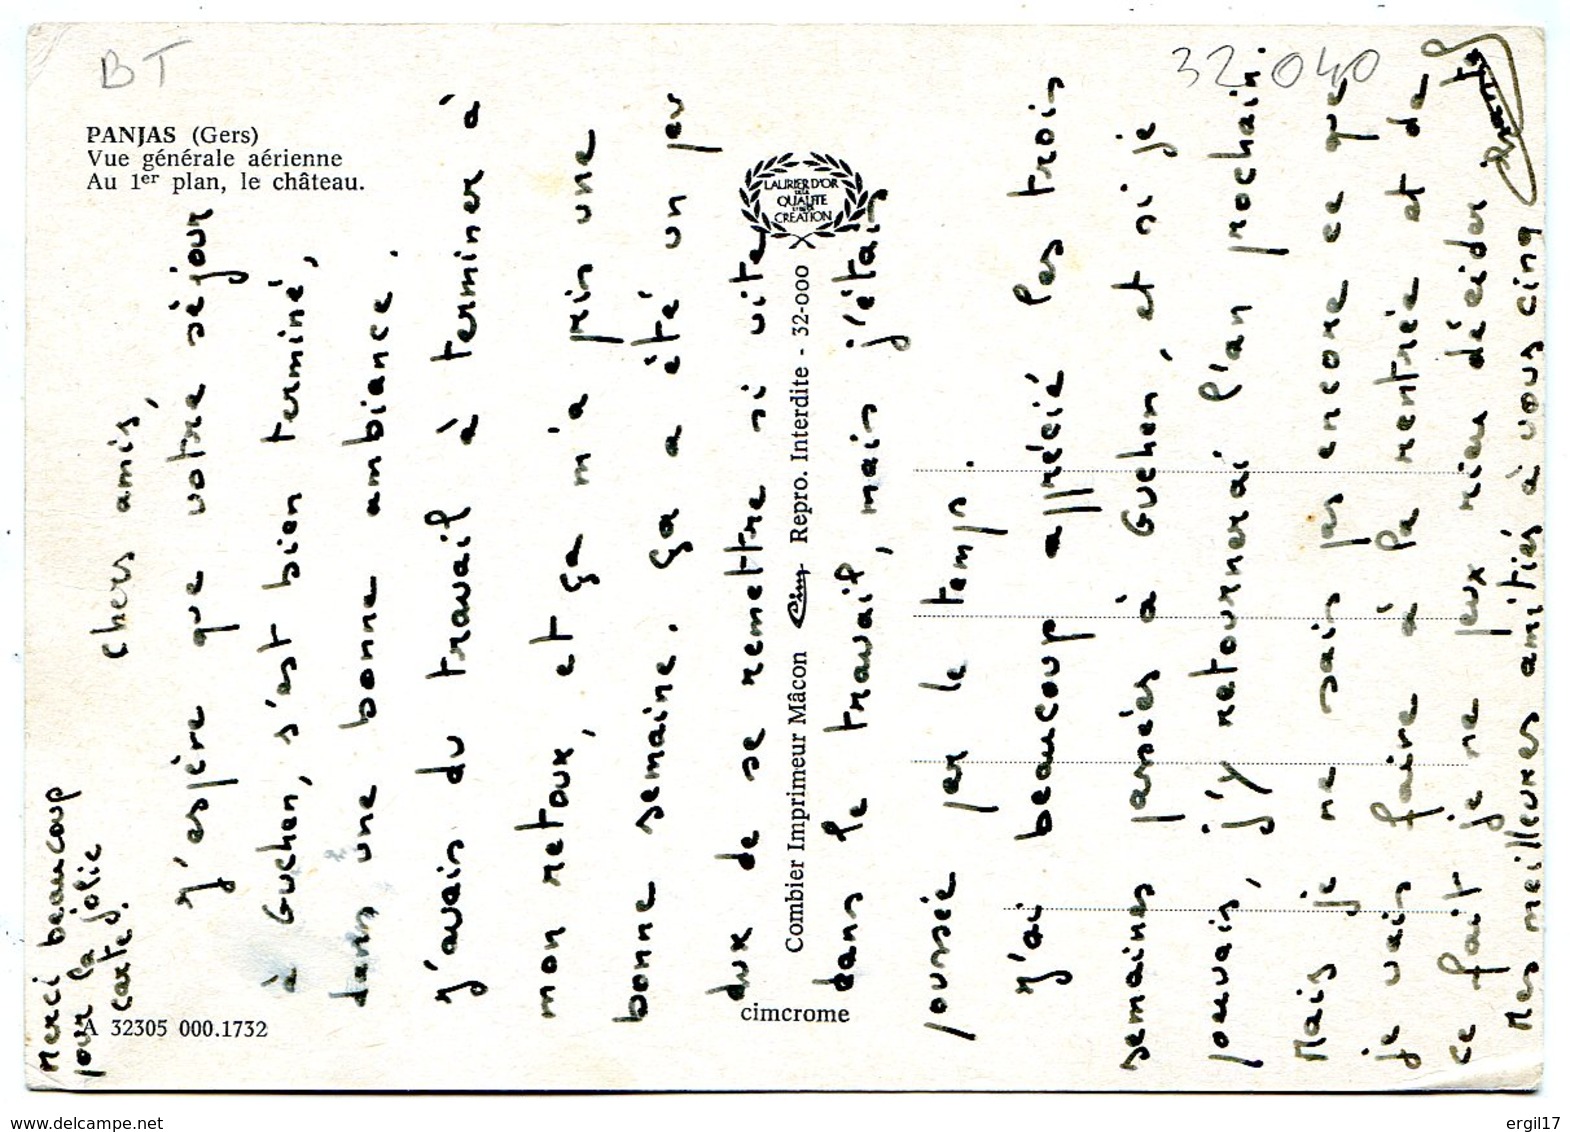 BT
32040
PANJAS (Gers)
Vue générale aérienne
Au 1er plan, le château.
LAURIER D'OR
DE LA
QUALITE
ET DE LA
CREATION
Combier Imprimeur Mâcon Cim Repro. Interdite - 32-000
cimcrome
A 32305 000.1732
Merci beaucoup
pour la jolie
carte.
Chers amis,
J'espère que votre séjour
à Guchen, s'est bien terminé,
dans une bonne ambiance.
J'avais du travail à terminer à
mon retour, et ça m'a pris une
bonne semaine. ça a été un peu
dur de se remettre si vite
dans le travail, mais j'étais
poussée par le temps.
J'ai beaucoup apprécié les trois
semaines passées à Guchen, et si je
pouvais, j'y retournerai l'an prochain.
Mais je ne sais pas encore ce que
je vais faire à la rentrée et de
ce fait je ne peux rien décider
Mes meilleures amitiés à vous cinq